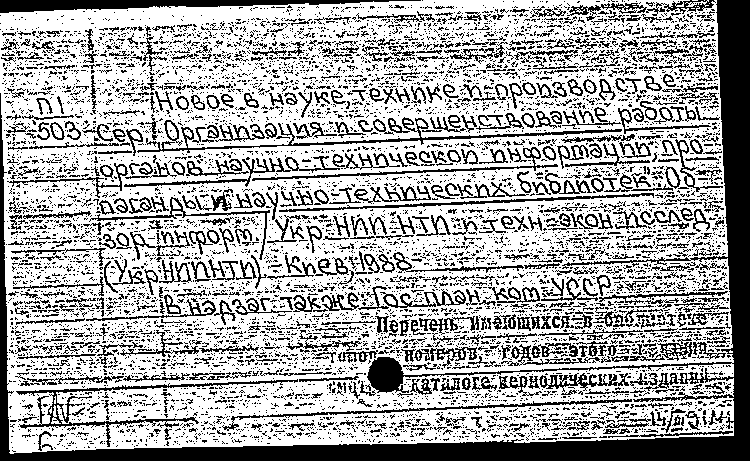 П1
503
Новое в науке, технике и производстве
Сер. "Организация и совершенствование работы
органов научно-технической информации, про
паганды и научно-технических библиотек". Об
зор. информ. / Укр. НИИ НТИ и техн.-экон. исслед.
(УкрНИИНТИ). - Киев, 1988-
В надзаг. также: Гос. план. ком. УССР
Перечень имеющихся в библиотеке
томов, номеров, годов этого издания
смотри в каталоге периодических изданий
6